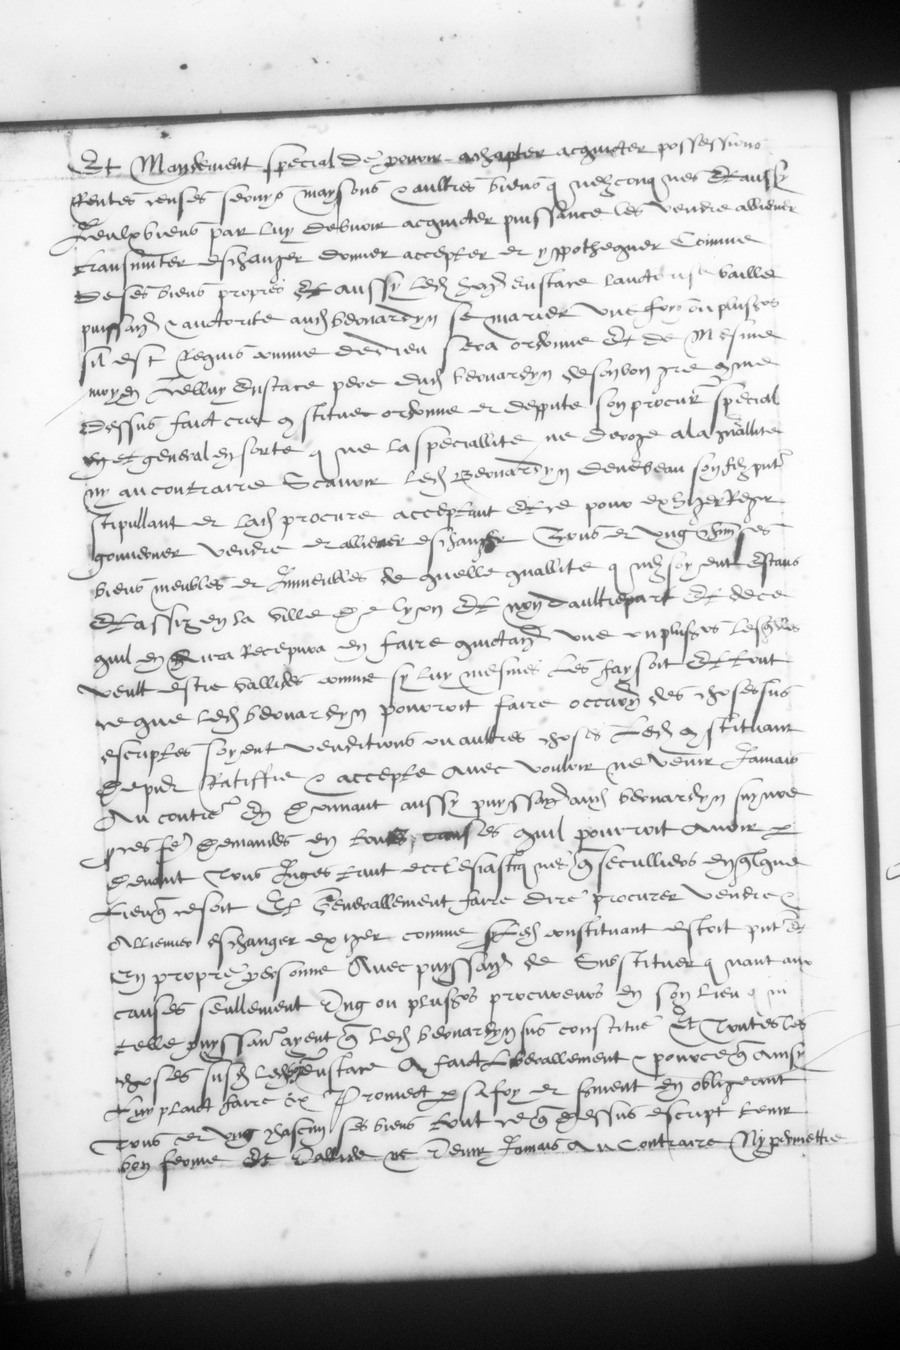 Et Mandement special de pouvoir achapter acquicter possessions
Rentes censes servys maysons & aultres biens q uelzconq ues Et aussy
Iceulx biens par luy debvoir acquicter puissance les vendre alliener
transmuter eschanger donner accepter et yppothequer Comme
de ses biens propres Et aussy led Eustace baille
puissan & auctorite aud beouardyn se marier une foys ou plusrs
sil est Requis comme de dieu sera ordonne Et de Mesme
moyen Icelluy Eustace pere dud beouardyn de son bon gre come
dessus faict cree constitue ordonne et depute son procur special
et general en sorte q ue la speciallite ne deroge a la gnallite
ny au contraire Scavoir led Beouardyn son filz pnt
stipullant et lad procure acceptant Et ce pour exhiger Regir
gouverner vendre et alliener eschanger Tous et ung chun ses
biens meubles et Immeubles de quelle quallite q uilz soyent Estans
Et assiz en la ville de lyon Et non daultrepart Et de ce
quil en Recepvra en faire quictan une ou plusrs lesqlles
veult estre vallides comme sy luy mesmes les faysoit Et tout
ce que led beouardyn pourroit faire occaon des choses sus
escriptes soyent venditions ou aultres choses led constituant
Ratiffie & accepte avec vouloir ne venir Jamais
Au contre En donnant aussy puyssan aud beouardyn
demandes en toutes causes quil pourroit avoir
devant Tous Juges tant ecclesiasticq ues q secullieres en qlque
lieu q ce soit Et Generallement faire dire procurer vendre &
Alliener eschanger exiger comme led constituant estoit pnt Et
En propre personne Avec puyssan de Substituer q uant aux
causes seullement Ung ou plusrs procureurs en son lieu q ui
telle puyssan ayent q led beouardyn sus constitue Et Toutes les
choses susd led Eustace A faict liberallement & pource q Ainsy
luy plaict faire Et Promect p sa foy et sment en obligeant
Tous et ung chascun ses biens tout ce q dessus escript tenir
bon ferme Et vallide ne venir Jamais Au Contraire Ny permettre